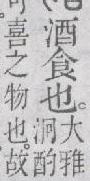 酒食也大雅
泂酌
可喜之物也故